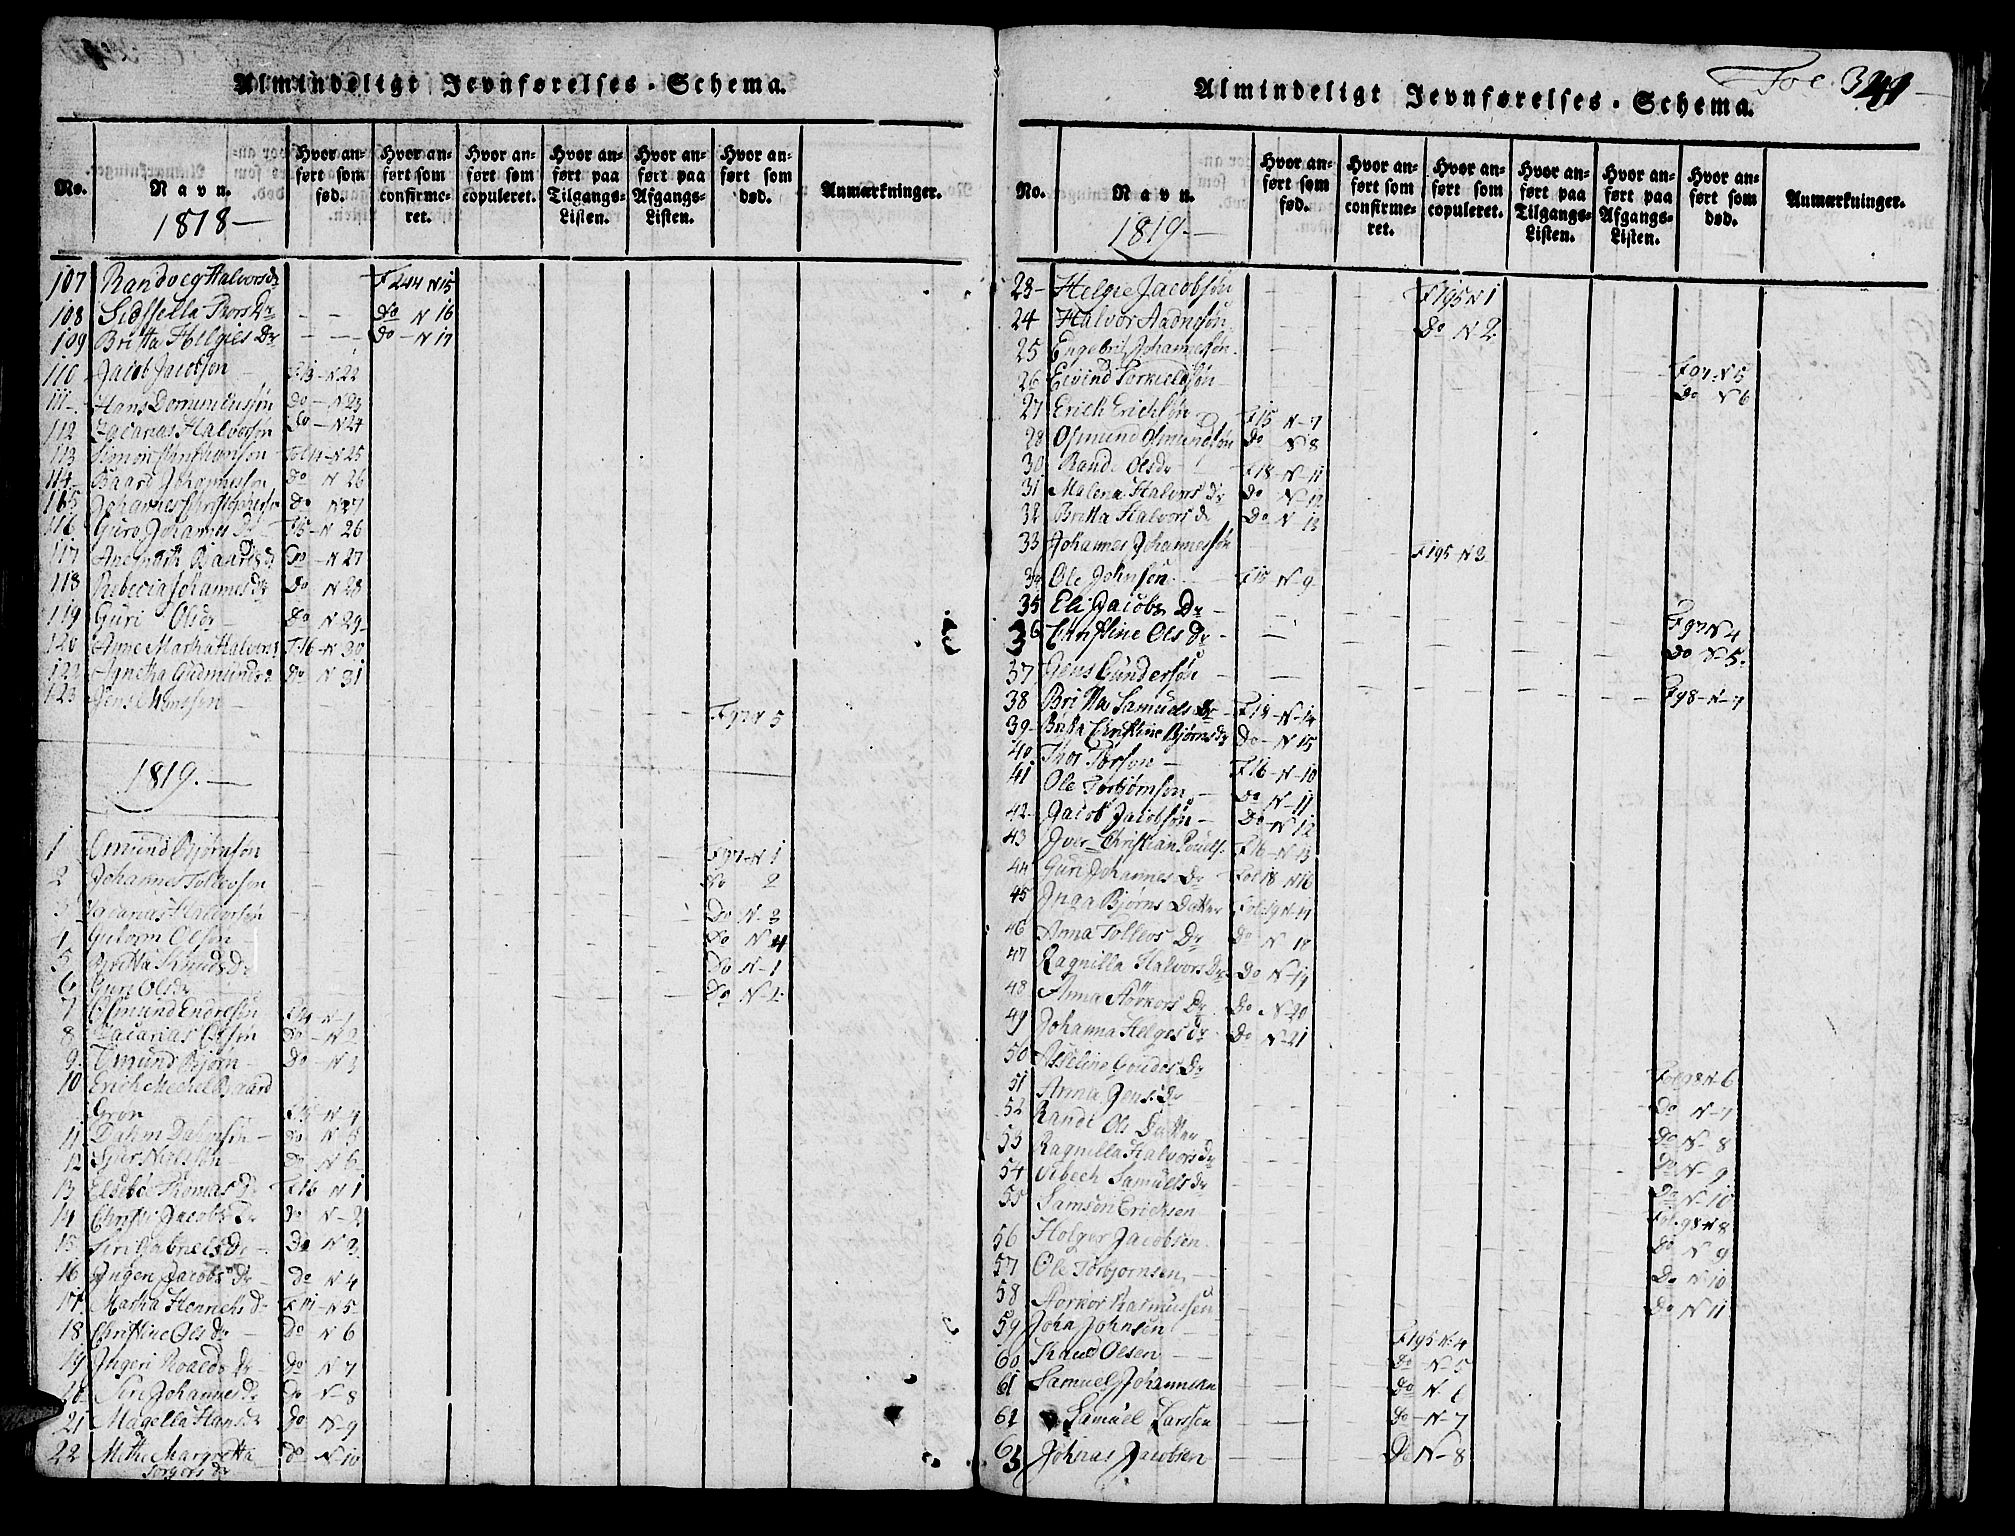 Almindeligt Jevnførelses-Schema.
No. Navn. Hvor anført som fød. Hvor anført som confirmeret. Hvor anført som copuleret. Hvor anført paa Tilgangs-Listen. Hvor anført paa Afgangs-Listen. Hvor anført som død. Anmærkninger.
1818 —
107 Randveg Halvorsdr F 244 N 15
108 Sidssella Thors Dr - - do N 16
109 Britta Helgies Dr - - do - N 17
110 Jacob Jacobson F 13 - N 22
111 Hans do - N 23
112 Zacarias Halvorson do - N 24
113 Simon Fol 14 - N 25
114 Baard Johannesson do N 26
115 Johannes Christophersen do N 27
116 Guro Johannes Dr F 15 - N 26
117 Ane Baards d do - N 27
118 Rebecca Johannes dr do N 28
119 Guri Olsdr do N 29
120 Anne Martha Halvors F 16 - N 30
122 Agnetha Gudmunds d do N 31
123 Jens Monssen F 97 N 5
1819. —
1 Omund Bjørnson F 97 N 1
2 Johannes Tollevson do 2
3 Zacarias Halvorson do N 3
4 Guttorm Olson do N 4
5 Britta Knuds Dr do N 1
6 Guri Olsdr do N 2
7 Osmund Endreson F 14 N 1
8 Zacarias Olson do - N 2
9 Omund Bjørn do - N 3
10 Erich Mechel Bgaard
Gron F 15 - N 4
11 Dahm Dahmson do - N 5
12 Sjur Nielsøn do N 6
13 Elsebe Thomas Dr F 16 N 1
14 Christi Jacobs Dr do N - 2
15 Siri Gabriels Dr do N 3
16 Ingeri Jacobs Dr do N 4
17 Martha Henrichs d F 17 - N 5
18 Christine Ols dr do N 6
19 Ingeri Roalds Dr do N 7
20 Siri Johannes dr do N - 8
21 Magella Hans dr do N - 9
22 Methe Margretta do - N - 10
Torgers dr
Fol. 329
Almindeligt Jevnførelses-Schema.
No. Navn. Hvor anført som fød. Hvor anført som confirmeret. Hvor anført som copuleret. Hvor anført paa Tilgangs-Listen. Hvor anført paa Afgangs-Listen. Hvor anført som død. Anmærkninger.
1819. —
23 Helgie Jacobsøn F 195 N 1
24 Halvor Aadnesøn do N 2
25 Engebrit Johannesøn F 97. N 5
26 Eivind Torkieldsøn do N 6
27 Erich Erichsøn F 15 N - 7
28 Osmund Osmundsøn do N 8
30 Randi Olsdr F 18 - N - 11
31 Malena Halvors dr do N - 12
32 Britta Halvors d do N - 13
33 Johannes Johannesøn F 195 N 3
34 Ole Johnsøn F 15 N - 9
35 Eli Jacobs Dr F 97 N 4
36 Christine Ols dr do N - 5
37 Jens Gundersøn F 98 - N - 7
38 Britta Samuels dr F 18 - N - 14
39 Britta Christine Bjørns dr do - N 15
40 Thor Torson F 16 - N - 10
41 Ole Torbjørnsøn do N - 11
42 Jacob Jacobsøn do N 12
43 Iver Christian Pouels. F 16 - N 13
44 Guri Johannes Dr Fol 18 N 16
45 Inga Bjørns Datter Fol. 19 N 17
46 Anna Tollevs Dr do N 18
47 Ragnilla Halvors Dr do N - 19
48 Anna Størkors Dr do. N 20
49 Johanna Helges dr do N 21
50 Asseline Goudes Dr Fol 98 N 6
51 Anna Jens. Dr do N - 7
52 Randi Ols Datter do N - 8
53 Ragnilla Halvors dr do N - 9
54 Vibech Samuels dr do N - 10
55 Samson Ericksen Fol. 98 N 8
56 Holger Jacobsen do N 9
57 Ole Torbjornsen do N 10
58 Storkor Rasmussen do N 11
59 John Johnsen F 195 N. 4
60 Knud Olsen do - N - 5
61 Samuel Johannesen do N - 6
62 Samuel Larssen do - N - 7
63 Johnas Jacobsen do N - 8